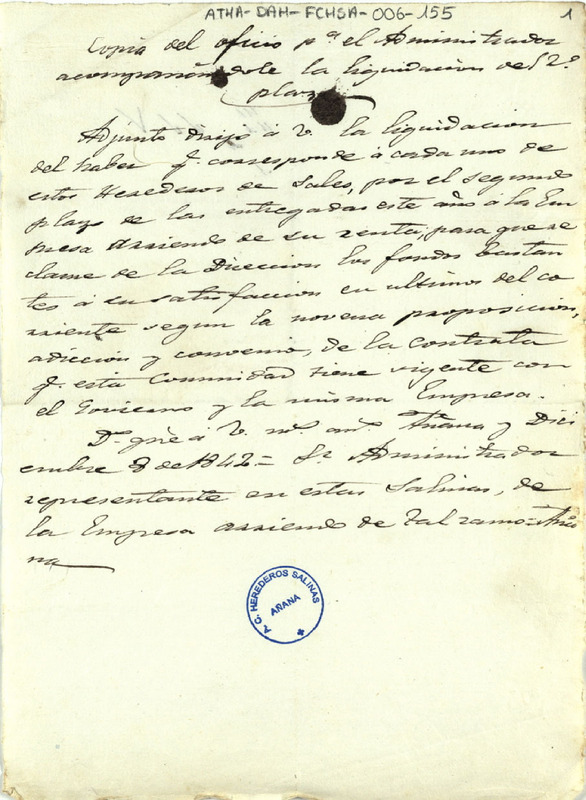 ATHA-DAH-FCHSA-006-155
1
Copia del oficio pª el Administrador
acompañandole la liquidacion del 2º
plazo
Adjunto dirijo á V. la liquidacion
del haber q. corresponde á cada uno de
estos Herederos de Sales, por el segundo
plazo de las entregadas este año á la Em
presa arriendo de su renta, para que re
clame de la Direccion los fondos bastan
tes á su satisfaccion en ultimos del co
rriente segun la novena proposicion,
adiccion y convenio, de la contrata
q. esta Comunidad tiene vigente con
el Govierno y la misma Empresa.
D. gue á V. m. an. Añana y Dici
embre 8 de 1842 = Sr Administrador
representante en estas Salinas, de
la Empresa arriendo de tal ramo = Aña
na
A. C. HEREDEROS SALINAS
AÑANA